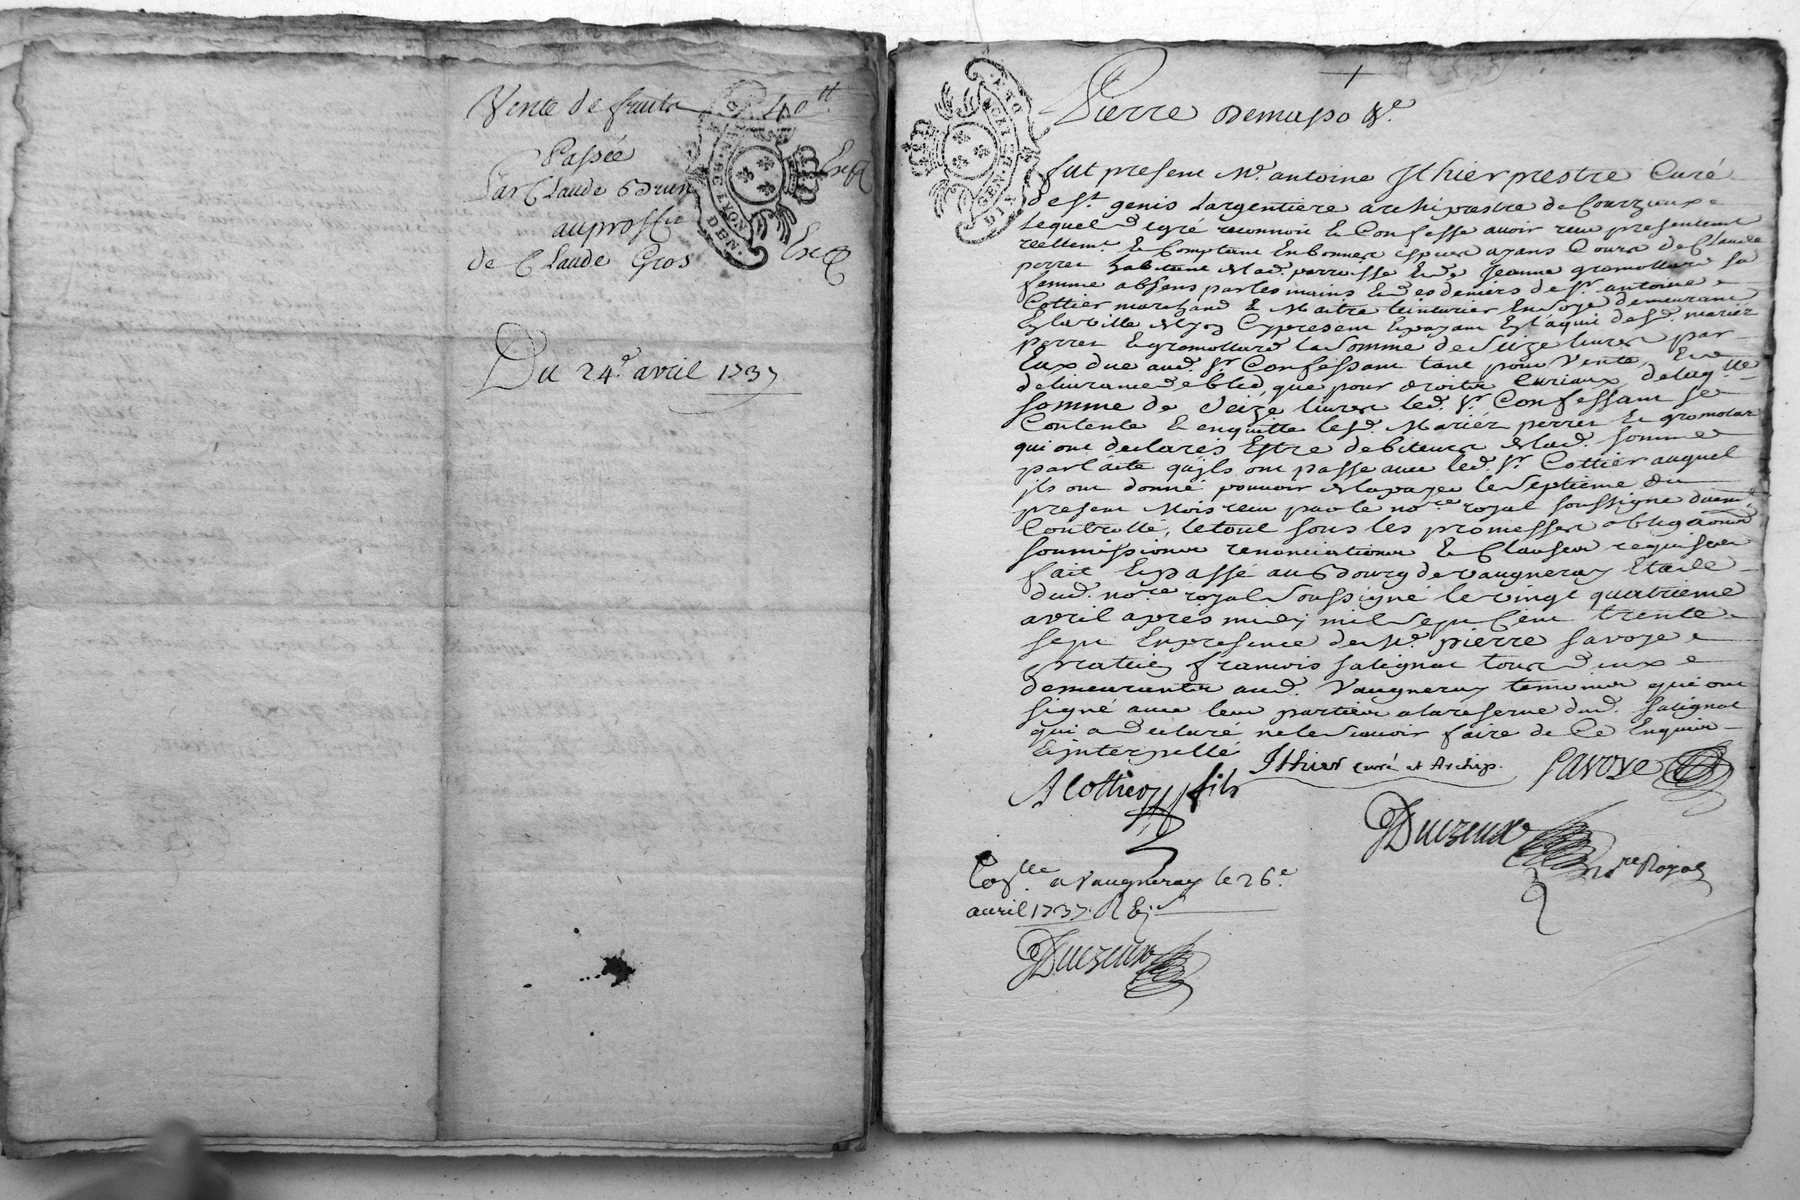 Vente de fruits 40tt
Passée
Par Claude Brun Exp
au proffit
de Claude Gros Exp
Du 24e. avril 1737
GEN. DE LYON DEN.
DIX DEN. GEN. DE LYO
Pierre Demaspo &e
fut present Me. antoine Ithier prestre Curé
de St. genis Largentiere archiprestre de Courzieux
Lequel degré reconnoit & Confesse avoir reçu presentement
reellemt. & Comptant En bonnes especes ayans Cours de Claude
perret habitant de lad. parroisse & de Jeanne gromollard sa
femme absens par les mains & des deniers de Sr. antoine
Cottier marchand & Maitre teinturier En soye demeurant
En la ville de Lyon Cy present & payant En l'aquit desd. mariez
perret & gromollard la somme de Seize livres par
Eux due aud. Sr. Confessant tant pour Vente &
delivrance de bled, que pour droits Curiaux, de laqlle
somme de Seize livres led. Sr. Confessant se
Contente & en quitte lesd. Mariéz perret & gromolar
qui ont declarés Estre debiteurs de lad. somme
par l'acte qu'ils ont passé avec led. Sr. Cottier auquel
ils ont donné pouvoir de la payer le septieme du
present Mois reçu par le nore royal soussigné duemt.
Controllé, le tout sous les promesses obligaons
soumissions renonciations & Clauses requises
fait & passé au Bourg de vaugneray Etude
dud. nore royal soussigné le vingt quatrieme
avril après midy mil sept Cent trente
sept En presence de Me. pierre savoye
praticien francois salignat tous deux
demeurants aud. Vaugneray temoins qui ont
signé avec les parties a la reserve dud. salignat
qui a declaré ne le sçavoir faire de Ce Enquis
& interpellé
Ithier curé et Archip. Savoye
A Cottier fils
Duczeux
nore Royal
Conlle a Vaugneray le 26e.
avril 1737. R
Duczeux